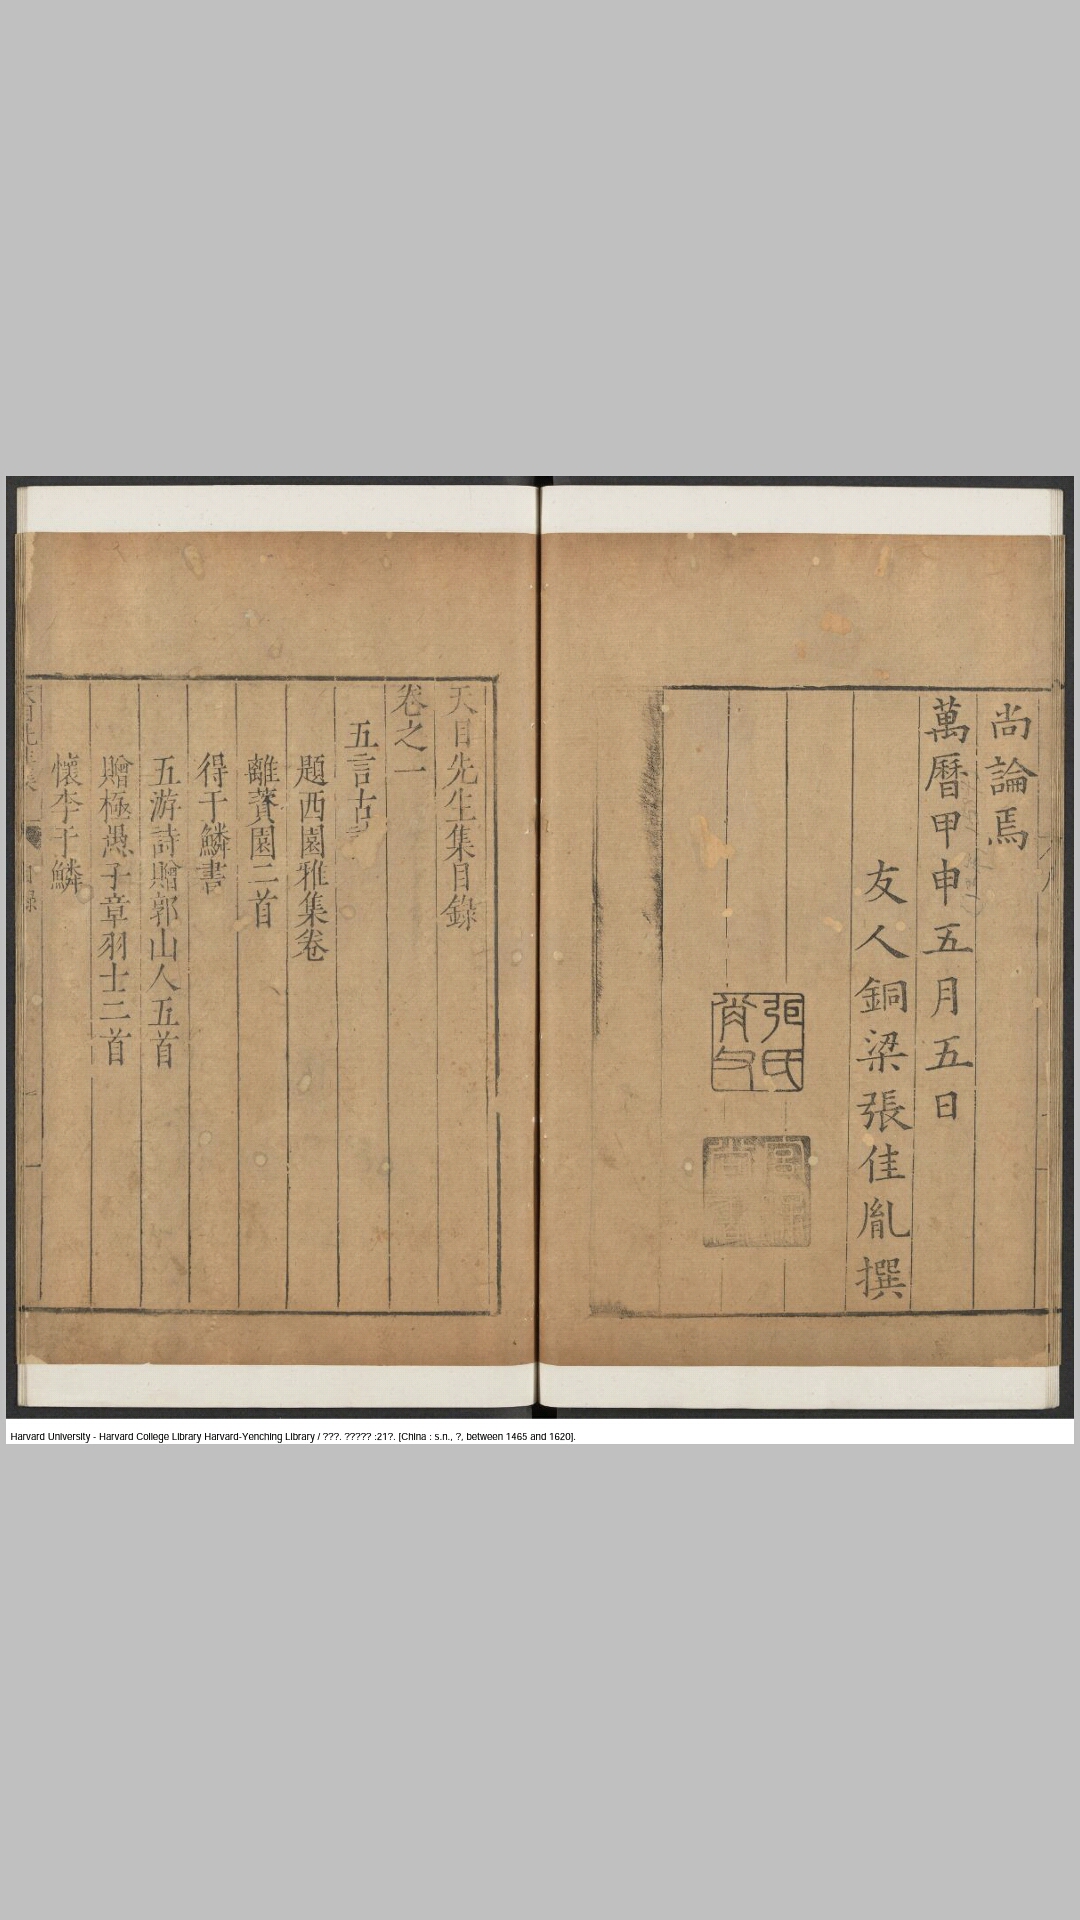 尚論焉
萬曆甲申五月五日
友人銅梁張佳胤撰
張氏肖父
天目先生集目錄
卷之一
五言古
題西園雅集卷
離薋園二首
得于鱗書
五游詩贈郭山人五首
贈極愚子章羽士二首
懷李于鱗
Harvard University - Harvard College Library Harvard-Yenching Library / ???. ????? :21?. [China : s.n., ?, between 1465 and 1620].